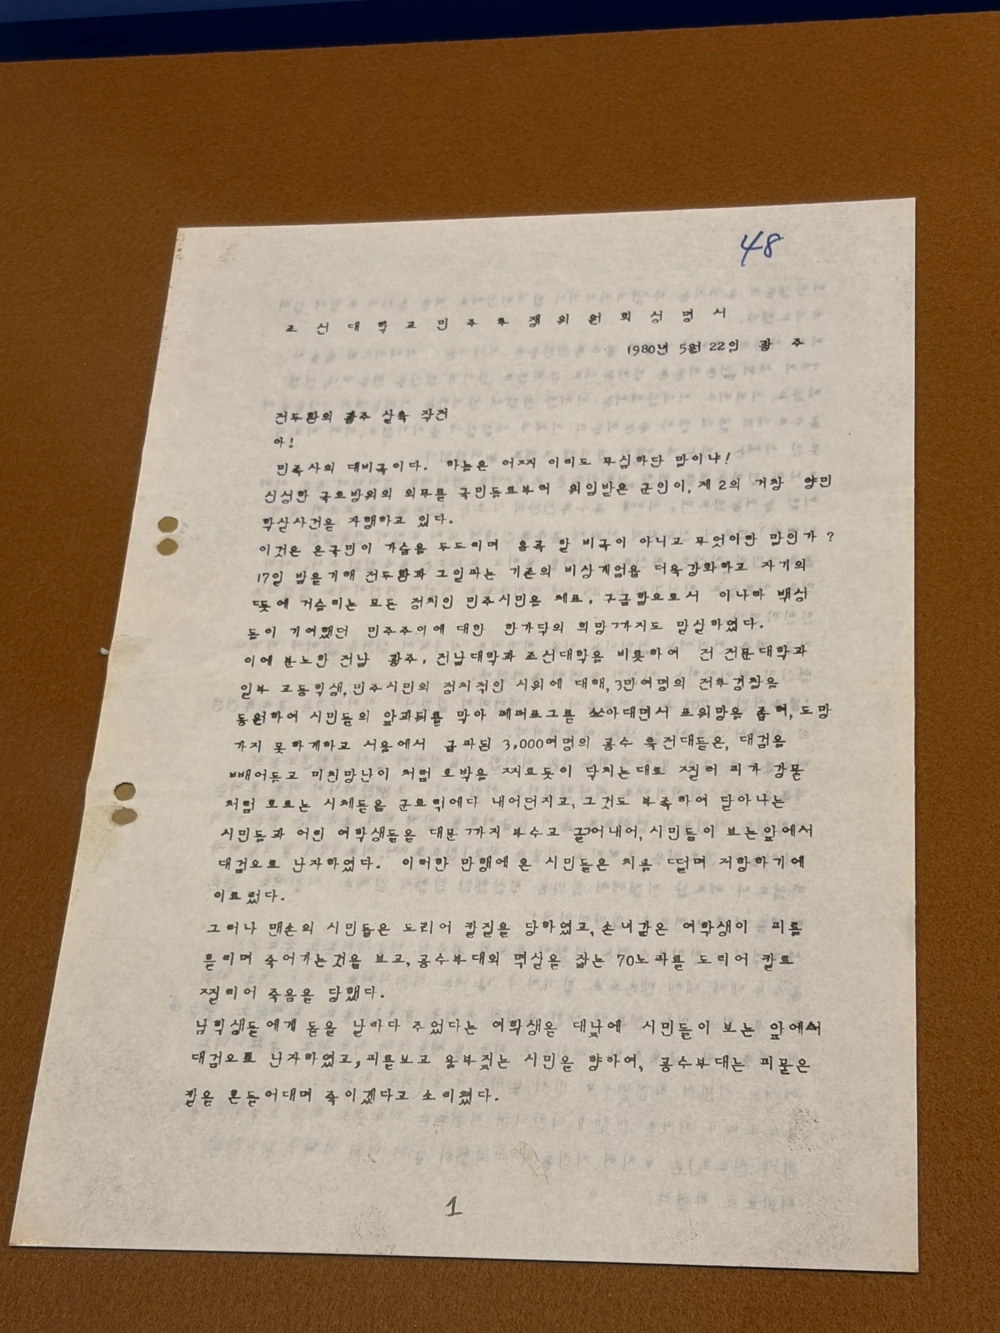 48
조선대학교민주투쟁위원회성명서
1980년 5월 22일 광 주
전두환의 광주 살육 작전
아!
민족사의 대비극이다. 하늘은 어찌 이리도 무심하단 말이냐!
신성한 국토방위의 의무를 국민들로부터 위임받은 군인이, 제2의 거창 양민
학살사건을 자행하고 있다.
이것은 온국민이 가슴을 두드리며 통곡 할 비극이 아니고 무엇이란 말인가?
17일 밤을기해 전두환과 그일파는 기존의 비상계엄을 더욱강화하고 자기의
뜻에 거슬리는 모든 정치인 민주시민을 체포, 구금함으로서 이나라 백성
들이 기여했던 민주주의에 대한 한가닥의 희망까지도 말살하였다.
이에 분노한 전남 광주, 전남대학과 조선대학을 비롯하여 전 전문대학과
일부 고등학생, 민주시민의 정치적인 시위에 대해, 3만여명의 전투경찰을
동원하여 시민들의 앞과뒤를 막아 페퍼포그를 쏘아대면서 포위망을 좁혀, 도망
가지 못하게하고 서울에서 급파된 3,000여명의 공수 특전대들은, 대검을
빼어들고 미친망난이 처럼 호박을 찌르듯이 닥치는대로 찔러 피가 강물
처럼 흐르는 시체들을 군트럭에다 내어던지고, 그것도 부족하여 달아나는
시민들과 어린 여학생들을 대문까지 부수고 끌어내어, 시민들이 보는앞에서
대검으로 난자하였다. 이러한 만행에 온 시민들은 치를 떨며 저항하기에
이르렀다.
그러나 맨손의 시민들은 도리어 칼질을 당하였고, 손녀같은 여학생이 피를
흘리며 죽어가는것을 보고, 공수부대의 멱살을 잡는 70노파를 도리어 칼로
찔리어 죽음을 당했다.
남학생들에게 돌을 날라다 주었다는 여학생을 대낮에 시민들이 보는 앞에서
대검으로 난자하였고, 피를보고 울부짖는 시민을 향하여, 공수부대는 피묻은
칼을 흔들어대며 죽이겠다고 소리쳤다.
1